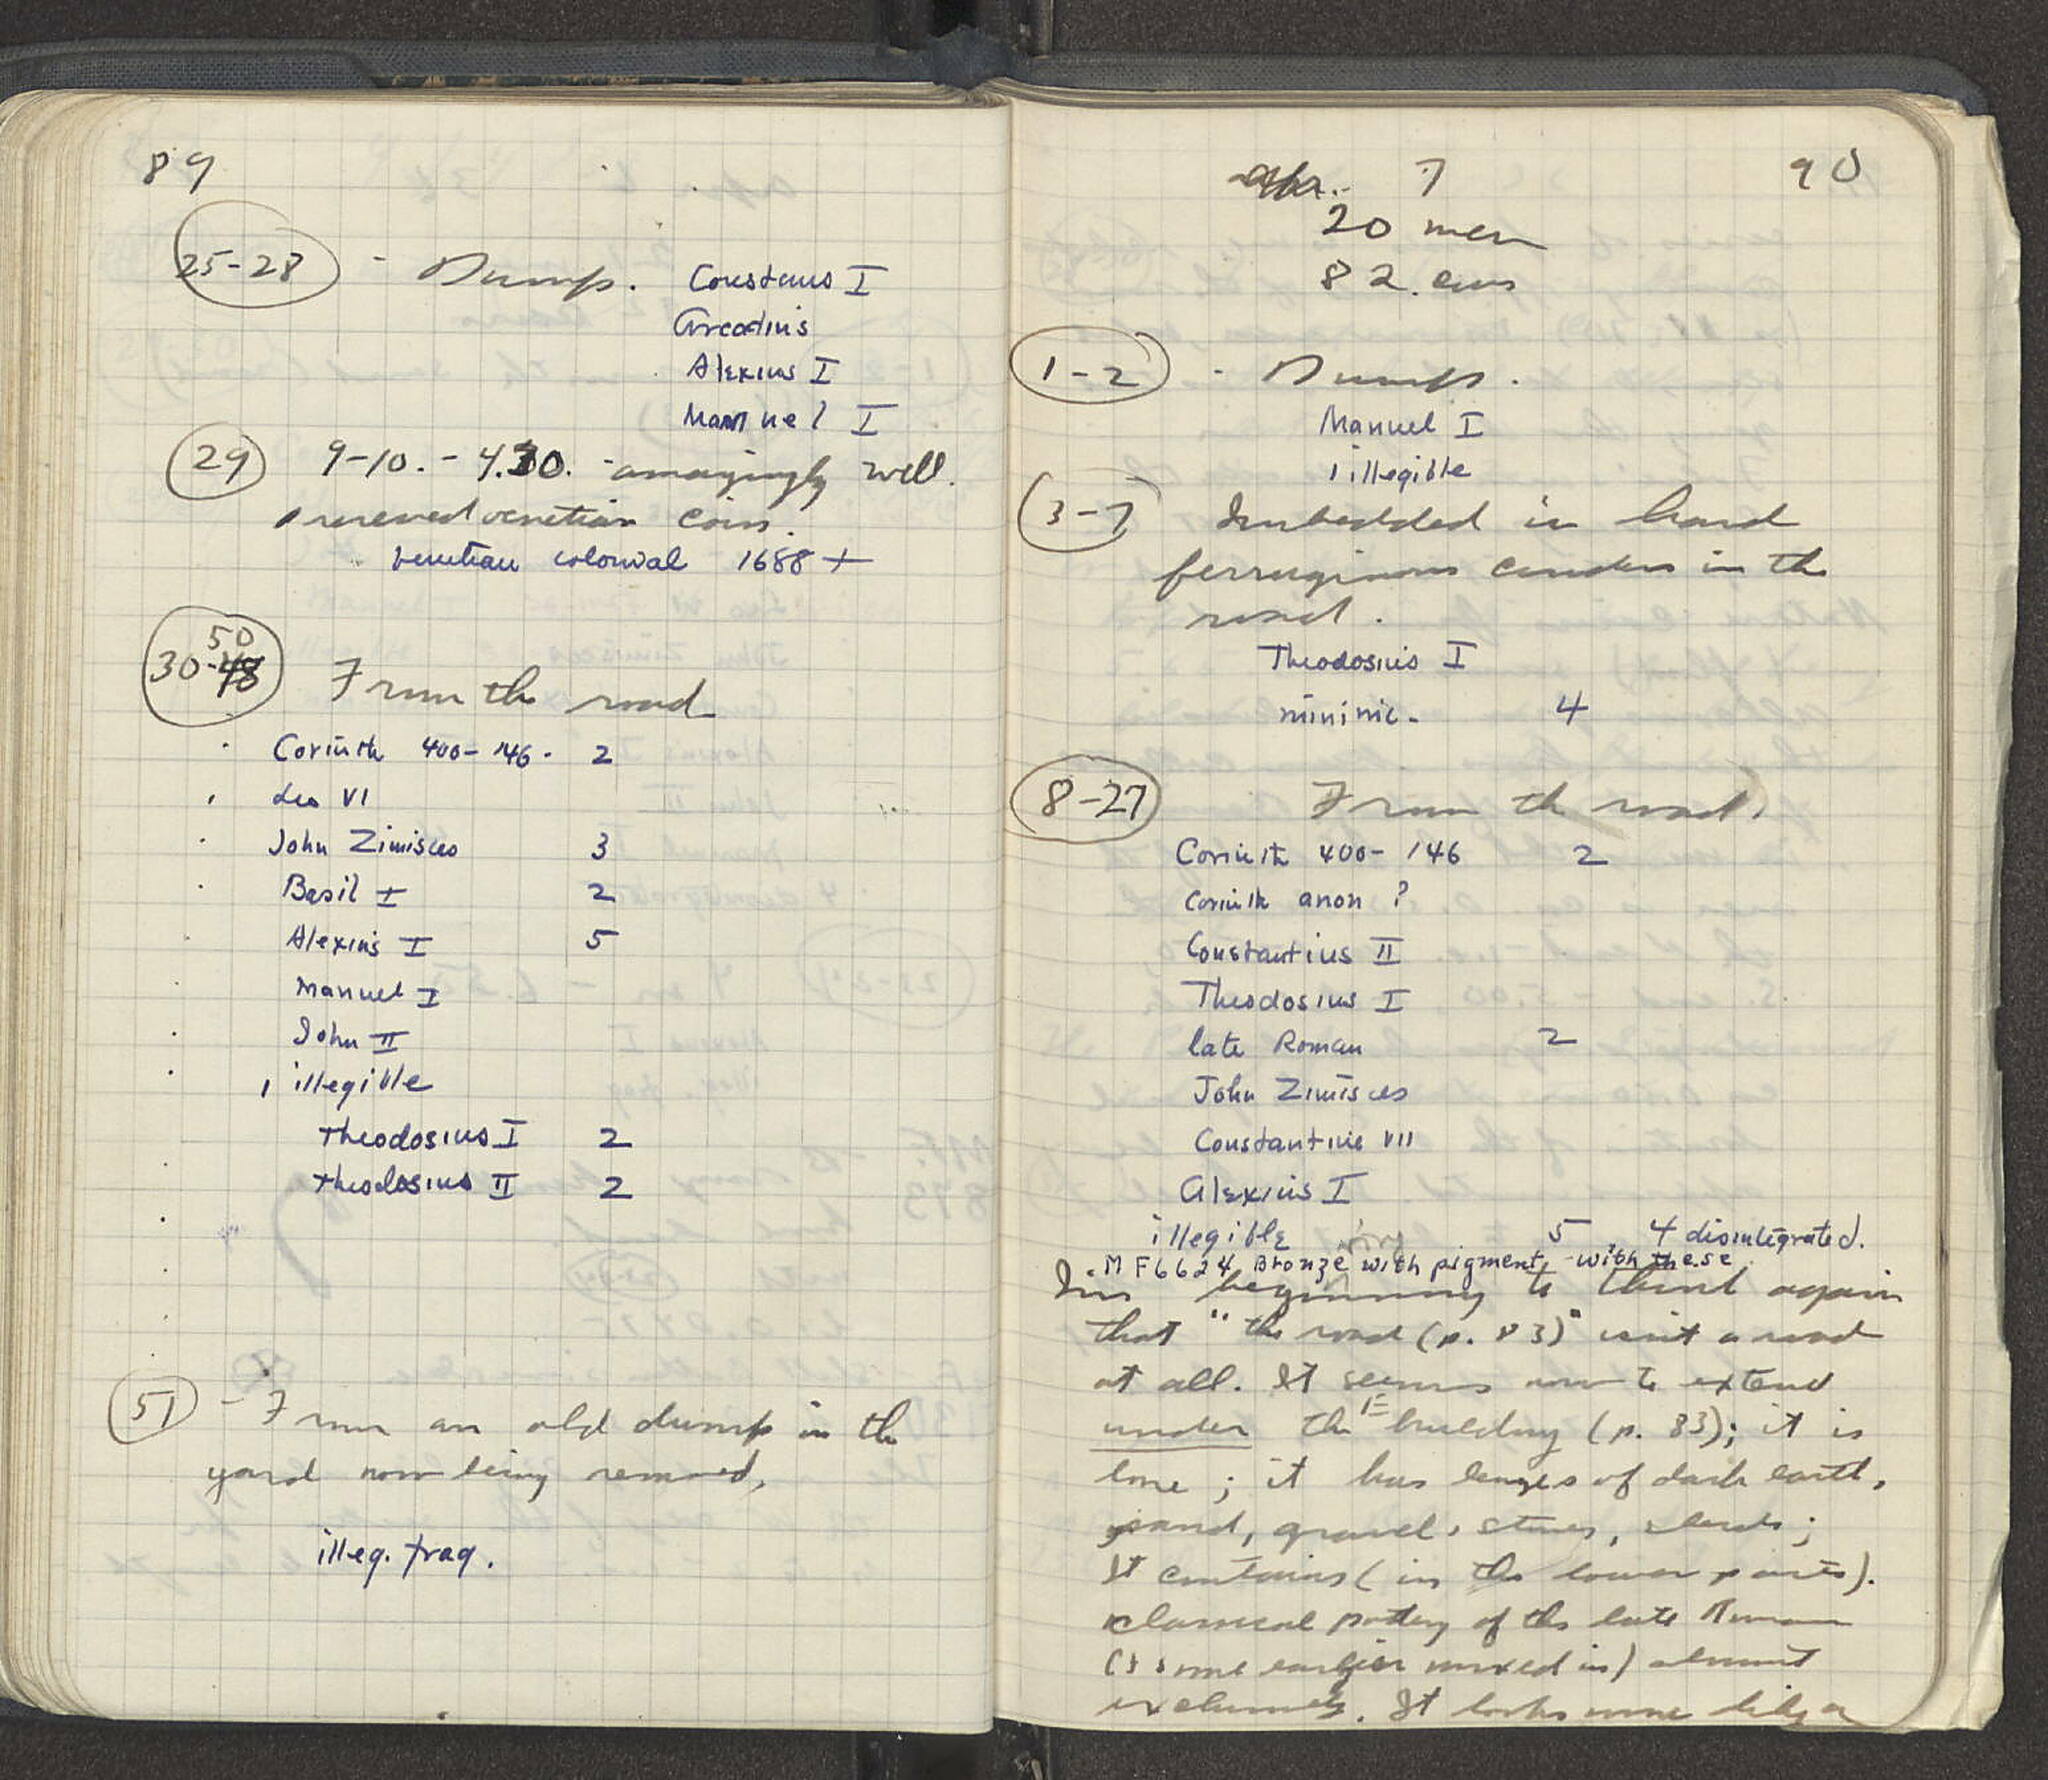 89
25-28 - Dump. Constans I
Arcadius
Alexius I
Manuel I
29 9-10. - 4.30. - amazingly well
preserved venetian coin.
Venetian colonial 1688 +
50
30-48 From the road
Corinth 400-146. 2
Leo VI
John Zimisces 3
Basil I 2
Alexius I 5
Manuel I
John II
1 illegible
Theodosius I 2
Theodosius II 2
51 - From an old dump in the
yard now being removed.
illeg. frag.
Apr. 7 90
20 men
82. cars
1-2 - Dump.
Manuel I
1 illegible
3-7 Imbedded in hard
ferruginous cinders in the
road.
Theodosius I
minimi - 4
8-27 From the road.
Corinth 400-146 2
Corinth anon ?
Constantius II
Theodosius I
late Roman 2
John Zimisces
Constantine VII
Alexius I
illegible 5 4 disintegrated.
MF6624 Bronze with pigment, with these
I'm beginning to think again
that "the road (p. 83)" isn't a road
at all. It seems now to extend
under the E building (p. 83); it is
; it has lenses of dark earth,
sand, gravel, stones, sherds;
It contains (in the lower parts)
classical pottery of the late Roman
(& some earlier mixed in) almost
exclusively. It looks more like a